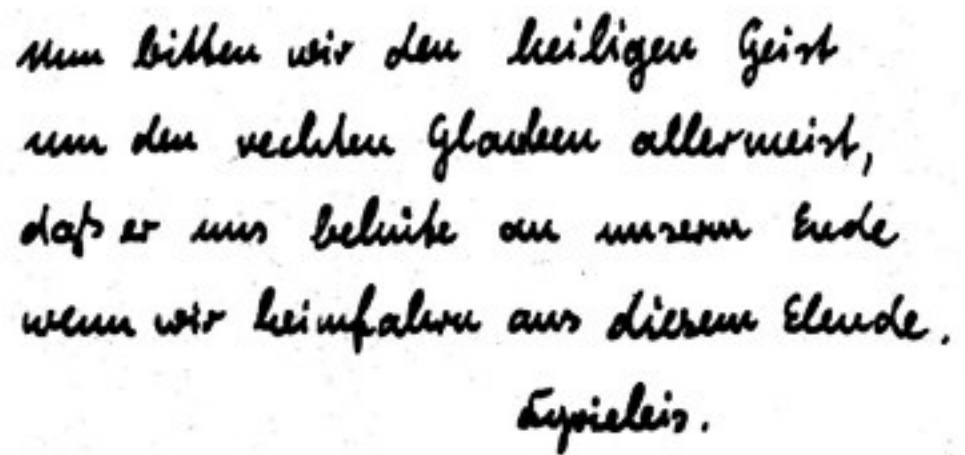 Nun bitten wir den heiligen Geist
um den rechten Glauben allermeist,
daß er uns behüte an unserm Ende
wenn wir heimfahrn aus diesem Elende.
Kyrieleis.